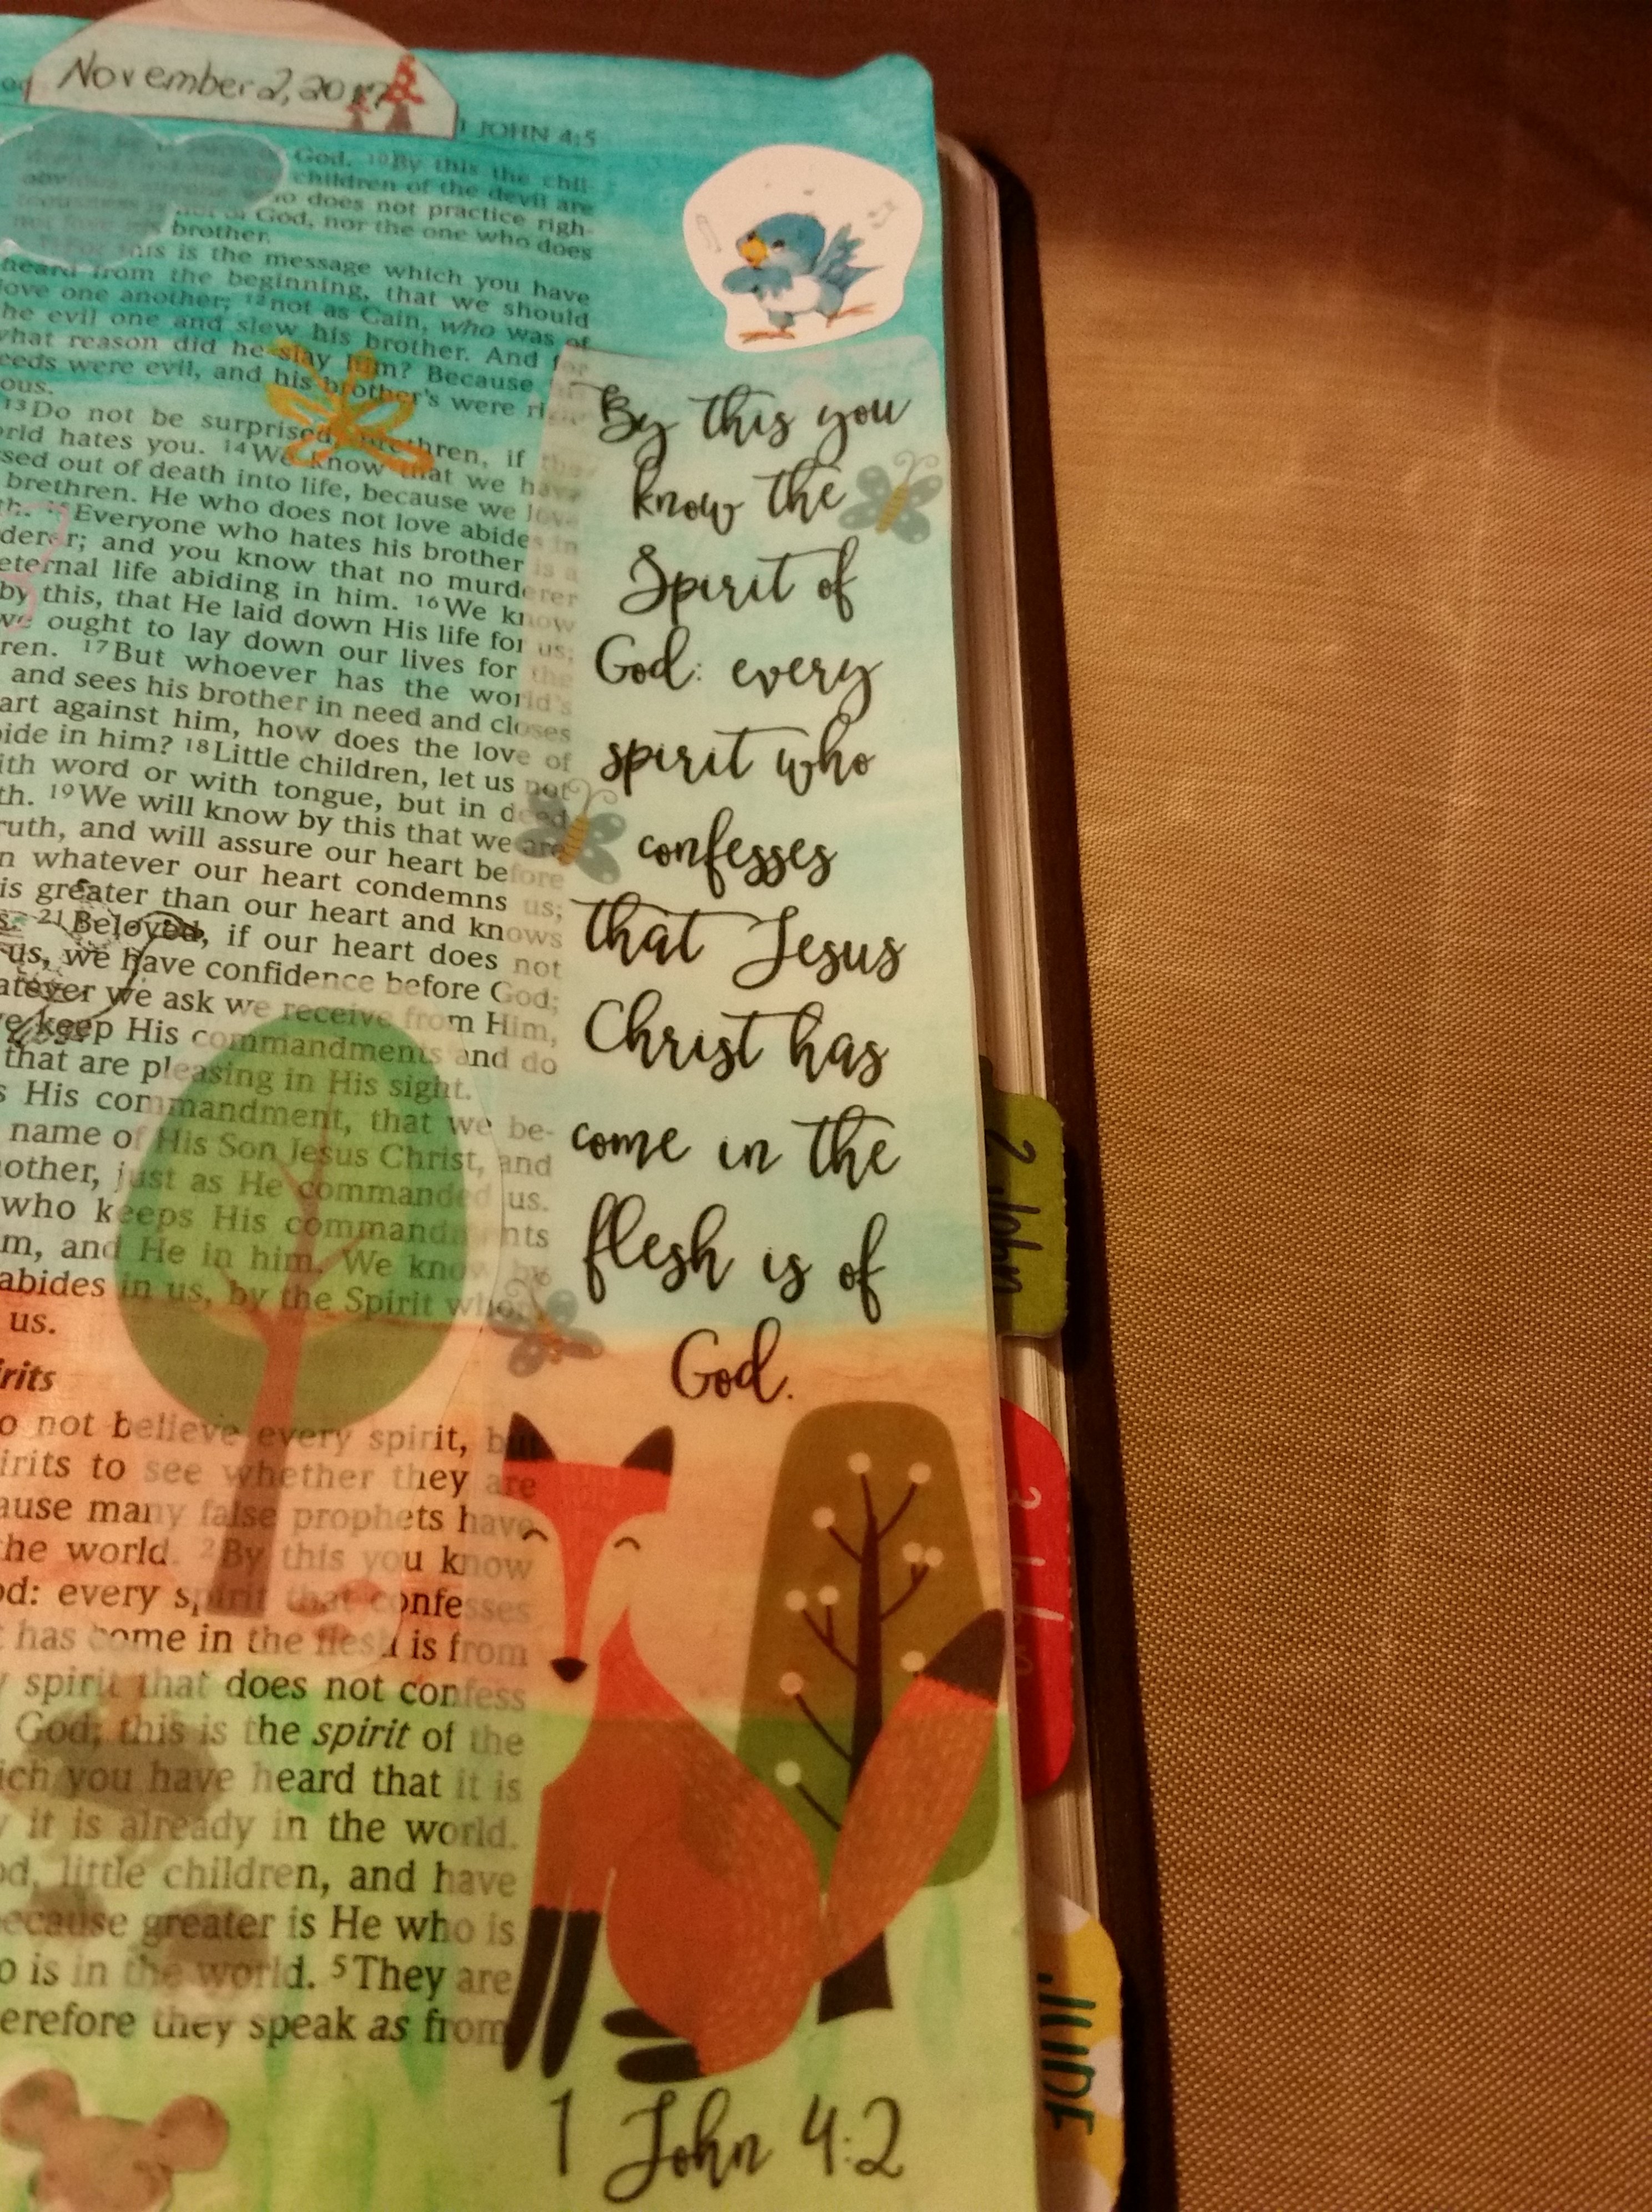 November 2, 2017
1 JOHN 4:5
God. 10By this the chil-
children of the devil are
does not practice righ-
God, nor the one who does
brother.
is is the message which you have
heard from the beginning, that we should
love one another; 12not as Cain, who was of
he evil one and slew his brother. And for
what reason did he slay him? Because
eeds were evil, and his brother's were ri
ous.
13Do not be surprised, brethren, if the
orld hates you. 14We know that we have
ssed out of death into life, because we love
brethren. He who does not love abides in
th. 15Everyone who hates his brother is a
derer; and you know that no murderer
eternal life abiding in him. 16We know
by this, that He laid down His life for us;
we ought to lay down our lives for the
ren. 17But whoever has the world's
and sees his brother in need and closes
art against him, how does the love of
ide in him? 18Little children, let us not
ith word or with tongue, but in deed
th. 19We will know by this that we are
ruth, and will assure our heart before
n whatever our heart condemns us;
is greater than our heart and knows
s. 21Beloved, if our heart does not
us, we have confidence before God;
atever we ask we receive from Him,
we keep His commandments and do
that are pleasing in His sight.
s His commandment, that we be-
name of His Son Jesus Christ, and
nother, just as He commanded us.
who keeps His commandments
m, and He in him. We know by
abides in us, by the Spirit whom
us.
irits
o not believe every spirit, but
irits to see whether they are
ause many false prophets have
the world. 2By this you know
od: every spirit that confesses
t has come in the flesh is from
y spirit that does not confess
God; this is the spirit of the
ich you have heard that it is
y it is already in the world.
od, little children, and have
ecause greater is He who is
o is in the world. 5They are
erefore they speak as from
By this you
know the
Spirit of
God: every
spirit who
confesses
that Jesus
Christ has
come in the
flesh is of
God.
1 John 4:2
2 John
3 John
JUDE